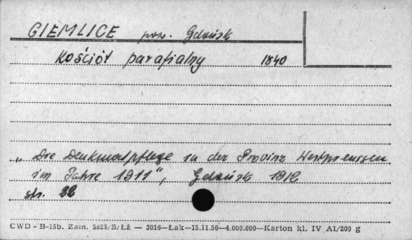 GIEMLICE pow. Gdańsk
Kościół parafialny 1840
„Die Denkmalpflege in der Provinz Westpreussen
im Jahre 1911", Gdańsk 1912
str. 26
CWD - B-15b. Zam. 5423/S/ŁŻ — 3016—Łak—15.11.56—4.000.000—Karton kl. IV A1/200 g